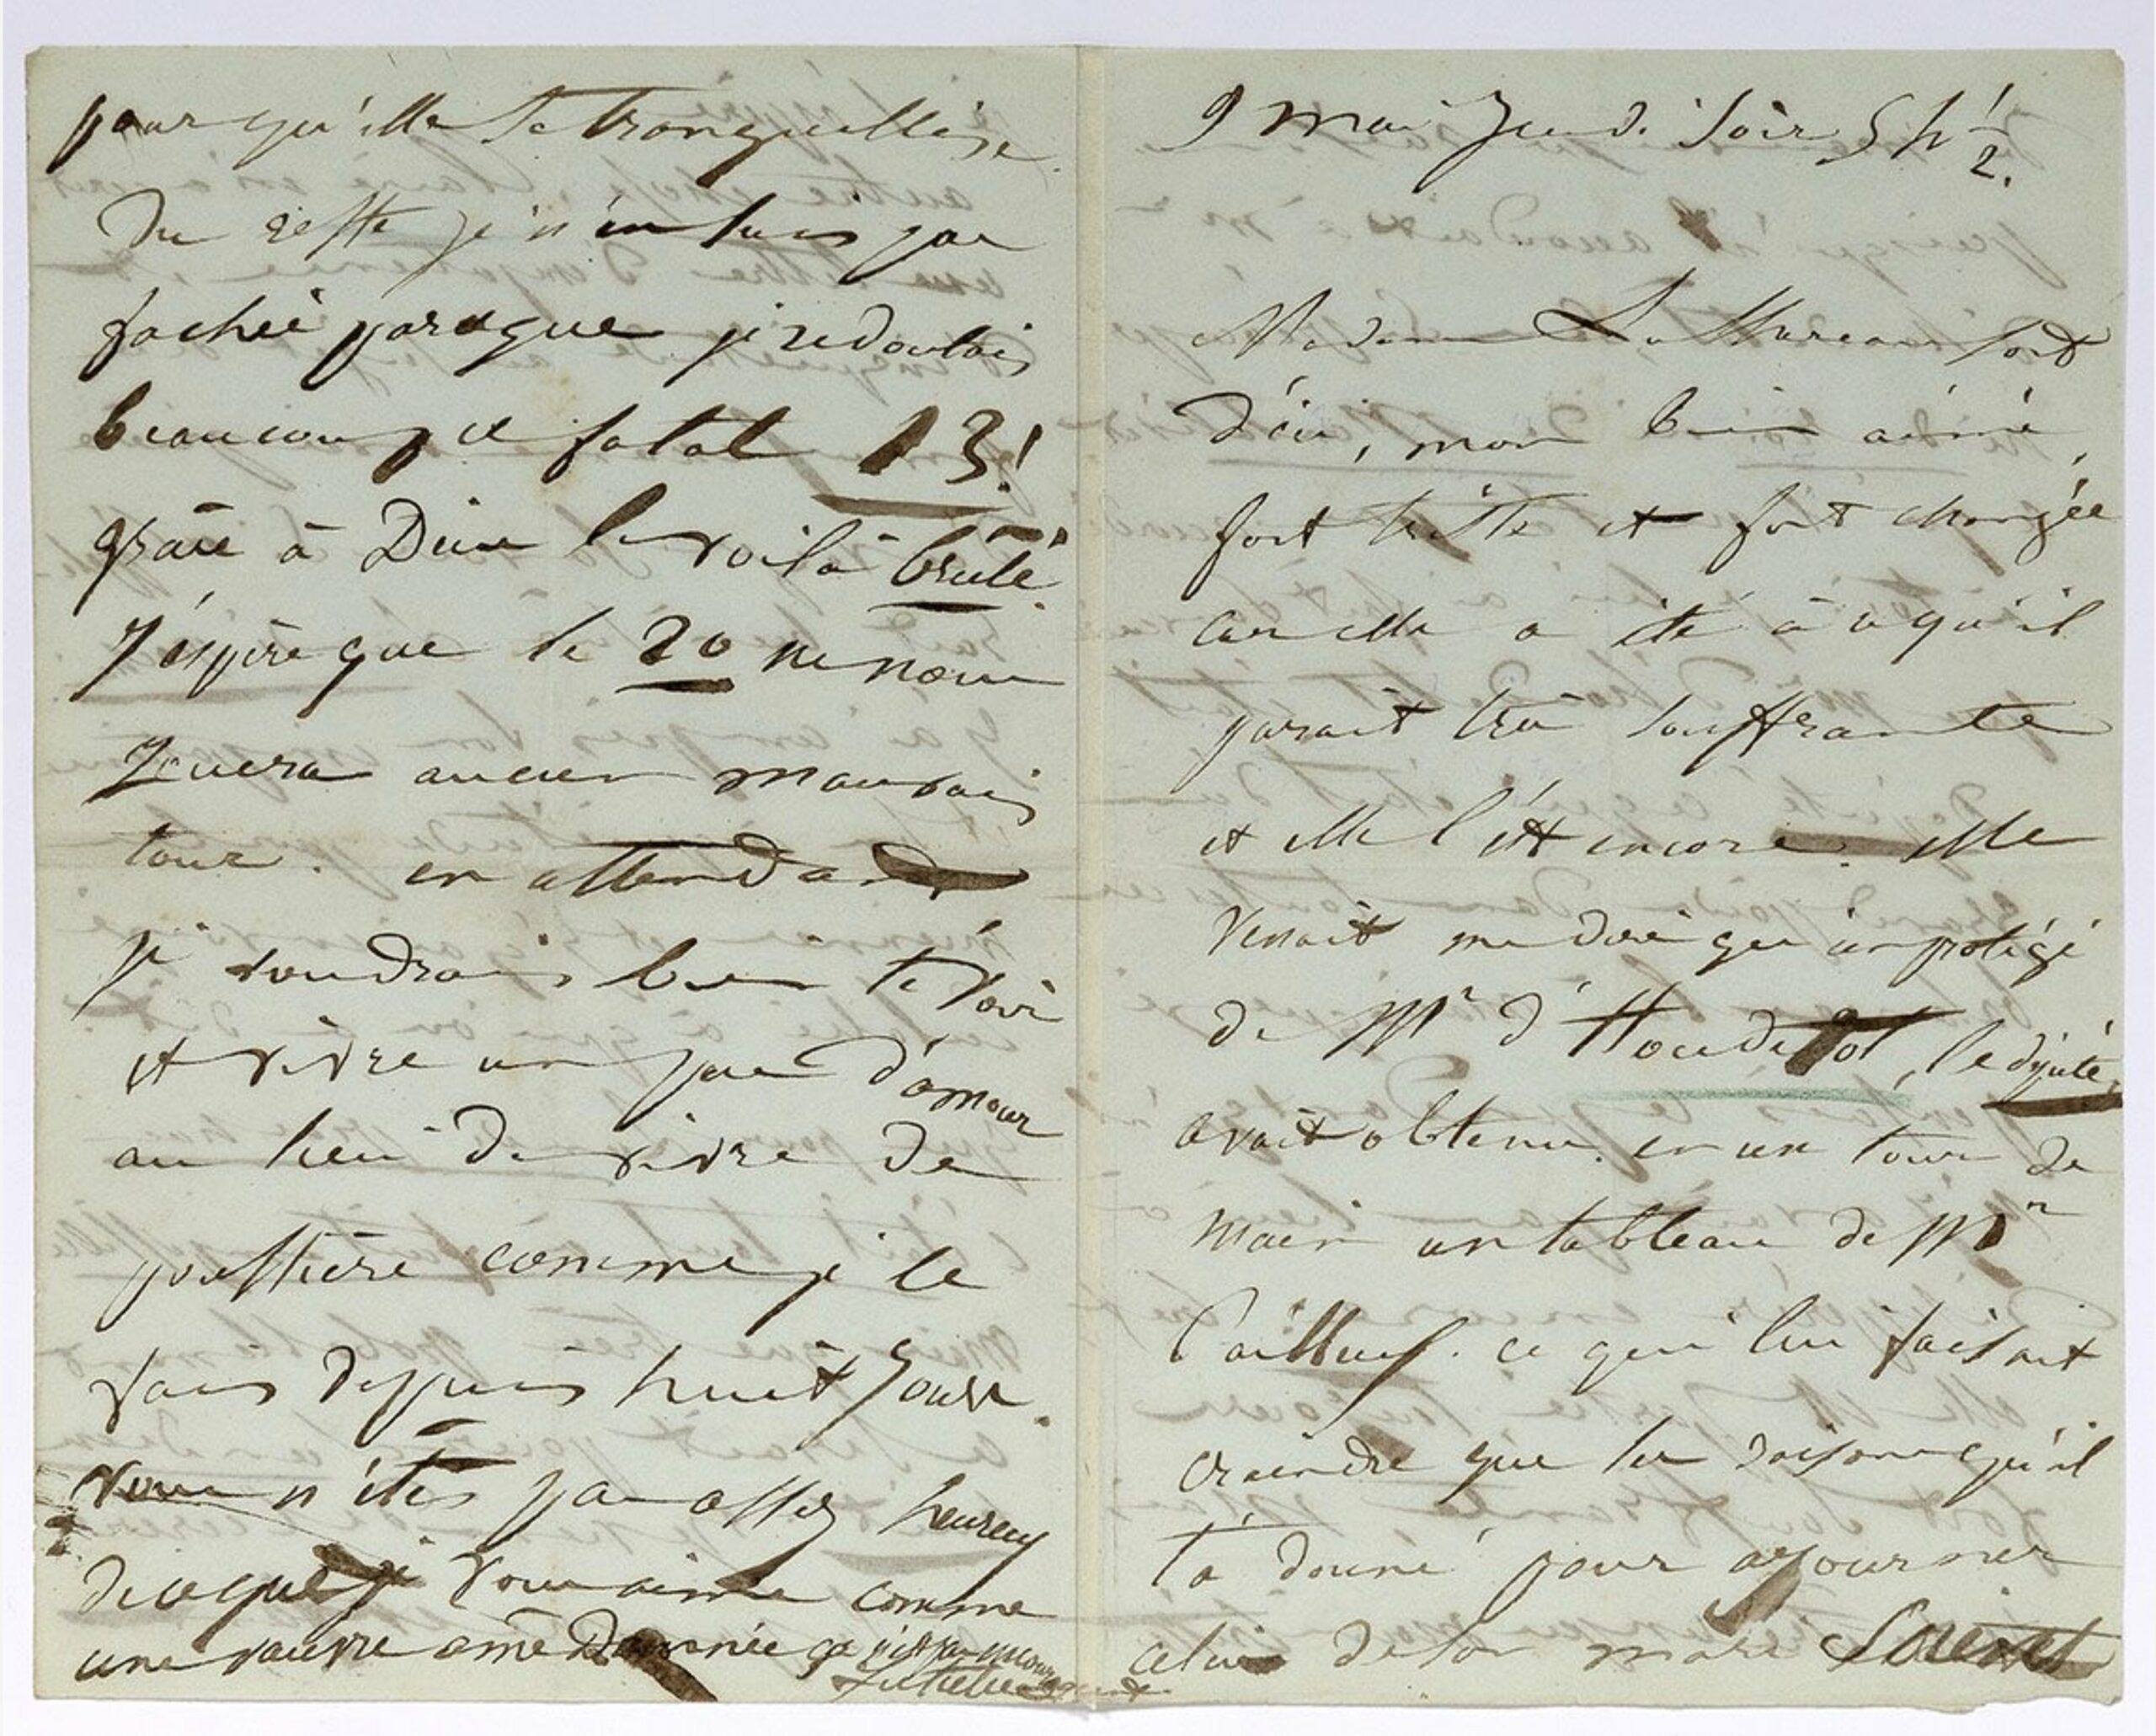 9 mai Jeudi soir 5 h ½.
Madame La Mureau sort
d'ici, mon bien aimé,
fort triste et fort changée
car elle a été à ce qu'il
parait très souffrante
et elle l'est encore. elle
venait me dire qu'un protégé
de Mr d'Houdetot, le député,
avait obtenu en un tour de
main un tableau de Mr
Cailleux. ce qui lui faisait
craindre que les raisons qu'il
t'a donné pour ajourner
celui de son mari soient
pour qu'elle se tranquillise.
Du reste je n'en suis pas
fachée parceque je redoutais
beaucoup ce fatal 13!
grâce à Dieu le voilà brulé.
J'espère que le 20 ne nous
jouera aucun mauvais
tour. en attendant
je voudrais bien te voir
et vivre un peu d'amour
au lieu de vivre de
poussière comme je le
fais depuis huit jours.
Vous n'êtes pas assez heureux
de ce que je vous aime comme
une pauvre âme damnée ça n'est pas encourageant
Juliette